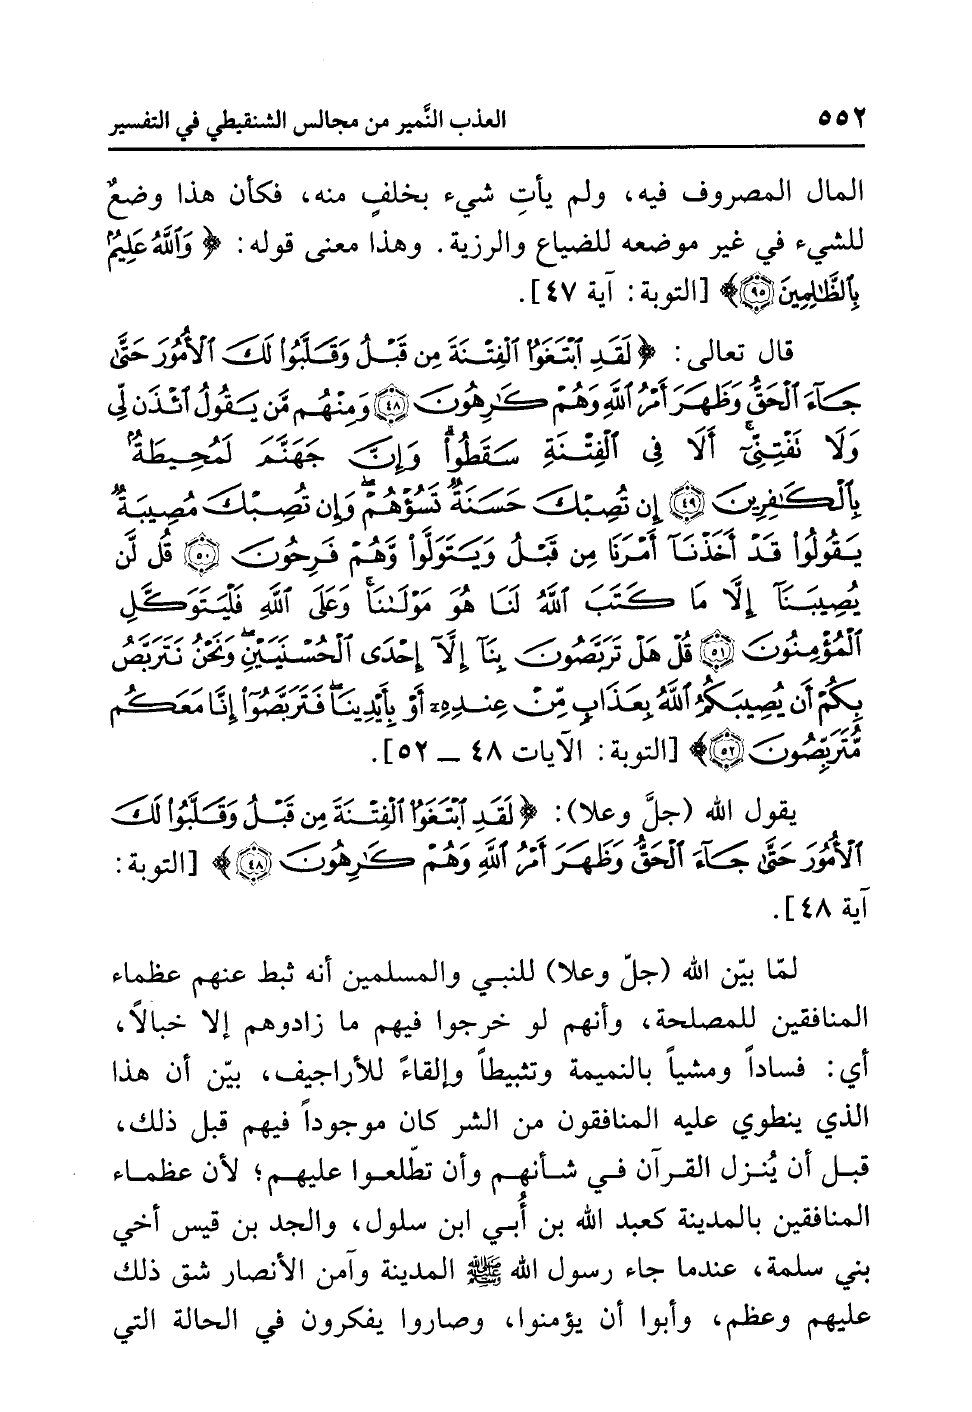 ٥٥٢ العذب النَّمير من مجالس الشنقيطي في التفسير
المال المصروف فيه، ولم يأتِ شيء بخلفٍ منه، فكأن هذا وضعٌ
للشيء في غير موضعه للضياع والرزية. وهذا معنى قوله: ﴿ وَٱللَّهُ عَلِيمٌۢ
بِٱلظَّٰلِمِينَ ٩٥﴾ [التوبة: آية ٤٧].
قال تعالى: ﴿ لَقَدِ ٱبْتَغَوُا۟ ٱلْفِتْنَةَ مِن قَبْلُ وَقَلَّبُوا۟ لَكَ ٱلْأُمُورَ حَتَّىٰ
جَآءَ ٱلْحَقُّ وَظَهَرَ أَمْرُ ٱللَّهِ وَهُمْ كَٰرِهُونَ ٤٨ وَمِنْهُم مَّن يَقُولُ ٱئْذَن لِّى
وَلَا تَفْتِنِّىٓ ۚ أَلَا فِى ٱلْفِتْنَةِ سَقَطُوا۟ ۗ وَإِنَّ جَهَنَّمَ لَمُحِيطَةٌۢ
بِٱلْكَٰفِرِينَ ٤٩ إِن تُصِبْكَ حَسَنَةٌ تَسُؤْهُمْ ۖ وَإِن تُصِبْكَ مُصِيبَةٌ
يَقُولُوا۟ قَدْ أَخَذْنَآ أَمْرَنَا مِن قَبْلُ وَيَتَوَلَّوا۟ وَّهُمْ فَرِحُونَ ٥٠ قُل لَّن
يُصِيبَنَآ إِلَّا مَا كَتَبَ ٱللَّهُ لَنَا هُوَ مَوْلَىٰنَا ۚ وَعَلَى ٱللَّهِ فَلْيَتَوَكَّلِ
ٱلْمُؤْمِنُونَ ٥١ قُلْ هَلْ تَرَبَّصُونَ بِنَآ إِلَّآ إِحْدَى ٱلْحُسْنَيَيْنِ ۖ وَنَحْنُ نَتَرَبَّصُ
بِكُمْ أَن يُصِيبَكُمُ ٱللَّهُ بِعَذَابٍ مِّنْ عِندِهِۦٓ أَوْ بِأَيْدِينَا ۖ فَتَرَبَّصُوٓا۟ إِنَّا مَعَكُم
مُّتَرَبِّصُونَ ٥٢﴾ [التوبة: الآيات ٤٨ ــ ٥٢].
يقول الله (جلَّ وعلا): ﴿ لَقَدِ ٱبْتَغَوُا۟ ٱلْفِتْنَةَ مِن قَبْلُ وَقَلَّبُوا۟ لَكَ
ٱلْأُمُورَ حَتَّىٰ جَآءَ ٱلْحَقُّ وَظَهَرَ أَمْرُ ٱللَّهِ وَهُمْ كَٰرِهُونَ ٤٨ ﴾ [التوبة:
آية ٤٨].
لمّا بيّن الله (جلّ وعلا) للنبي والمسلمين أنه ثبط عنهم عظماء
المنافقين للمصلحة، وأنهم لو خرجوا فيهم ما زادوهم إلا خبالاً،
أي: فساداً ومشياً بالنميمة وتثبيطاً وإلقاءً للأراجيف، بيّن أن هذا
الذي ينطوي عليه المنافقون من الشر كان موجوداً فيهم قبل ذلك،
قبل أن يُنزل القرآن في شأنهم وأن تطّلعوا عليهم؛ لأن عظماء
المنافقين بالمدينة كعبد الله بن أُبي ابن سلول، والجد بن قيس أخي
بني سلمة، عندما جاء رسول الله ﷺ المدينة وآمن الأنصار شق ذلك
عليهم وعظم، وأبوا أن يؤمنوا، وصاروا يفكرون في الحالة التي